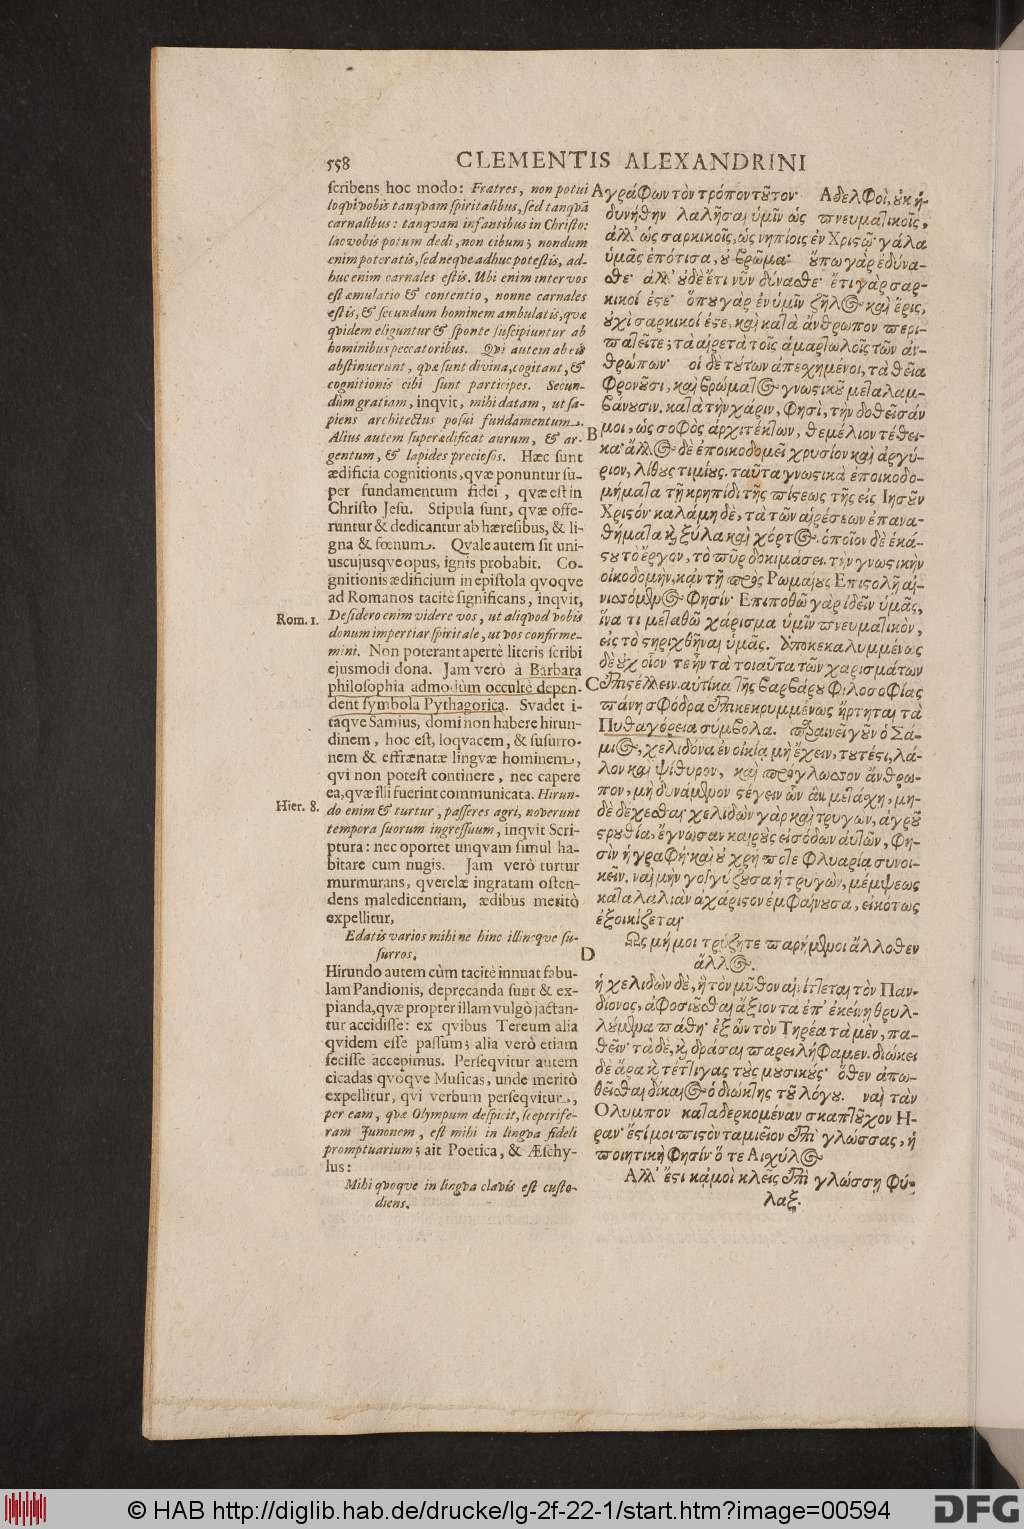 558
CLEMENTIS ALEXANDRINI
scribens hoc modo: Fratres, non potui
loqvi vobis tanqvam spiritalibus, sed tanqvã
carnalibus: tanqvam infantibus in Christo:
lac vobis potum dedi, non cibum; nondum
enim poteratis, sed neqve adhuc potestis, ad-
huc enim carnales estis. Ubi enim inter vos
est æmulatio & contentio, nonne carnales
estis, & secundum hominem ambulatis, qvæ
qvidem eliguntur & sponte suscipiuntur ab
hominibus peccatoribus. Qvi autem ab eis
abstinuerunt, qvæ sunt divina, cogitant, &
cognitionis cibi sunt participes. Secun-
dùm gratiam, inqvit, mihi datam, ut sa-
piens architectus posui fundamentum.
Alius autem superædificat aurum, & ar-
gentum, & lapides preciosos. Hæc sunt
ædificia cognitionis, qvæ ponuntur su-
per fundamentum fidei, qvæ est in
Christo Jesu. Stipula sunt, qvæ offe-
runtur & dedicantur ab hæresibus, & li-
gna & fœnum. Qvale autem sit uni-
uscujusqve opus, ignis probabit. Co-
gnitionis ædificium in epistola qvoqve
ad Romanos tacitè significans, inqvit,
Rom. 1.
Desidero enim videre vos, ut aliqvod vobis
donum impertiar spiritale, ut vos confirme-
mini. Non poterant apertè literis scribi
ejusmodi dona. Jam verò à Barbara
philosophia admodùm occultè depen-
dent symbola Pythagorica. Svadet i-
taqve Samius, domi non habere hirun-
dinem, hoc est, loqvacem, & susurro-
nem & effrænatæ lingvæ hominem,
qvi non potest continere, nec capere
ea, qvæ illi fuerint communicata. Hirun-
Hier. 8.
do enim & turtur, passeres agri, noverunt
tempora suorum ingressuum, inqvit Scri-
ptura: nec oportet unqvam simul ha-
bitare cum nugis. Jam verò turtur
murmurans, qverelæ ingratam osten-
dens maledicentiam, ædibus meritò
expellitur,
Edatis varios mihi ne hinc illincqve su-
surros.
Hirundo autem cùm tacitè innuat fabu-
lam Pandionis, deprecanda sunt & ex-
pianda, qvæ propter illam vulgò jactan-
tur accidisse: ex qvibus Tereum alia
qvidem esse passum; alia verò etiam
fecisse accepimus. Perseqvitur autem
cicadas qvoqve Musicas, unde meritò
expellitur, qvi verbum perseqvitur,
per eam, qvæ Olympum despicit, sceptrife-
ram Junonem, est mihi in lingva fideli
promptuarium; ait Poetica, & Æschy-
lus:
Mihi qvoque in lingva clavis est custo-
diens.
Α γράφων τὸν τρόπον τοῦτον· Αδελφοὶ, οὐκ ἠ-
δυνήθην λαλῆσαι ὑμῖν ὡς πνευματικοῖς,
ἀλλ' ὡς σαρκικοῖς, ὡς νηπίοις ἐν Χριστῷ· γάλα
ὑμᾶς ἐπότισα, οὐ βρῶμα· οὔπω γὰρ ἐδύνα-
σθε· ἀλλ' οὐδὲ ἔτι νῦν δύνασθε· ἔτι γὰρ σαρ-
κικοί ἐστε· ὅπου γὰρ ἐν ὑμῖν ζῆλος καὶ ἔρις,
οὐχὶ σαρκικοί ἐστε, καὶ κατὰ ἄνθρωπον περι-
πατεῖτε; τὰ αἱρετὰ τοῖς ἁμαρτωλοῖς τῶν ἀν-
θρώπων· οἱ δὲ τούτων ἀπεχημένοι, τὰ θεῖα
φρονοῦσι, καὶ βρώματος γνωστικοῦ μεταλαμ-
βάνουσιν. κατὰ τὴν χάριν, φησὶ, τὴν δοθεῖσάν
B
μοι, ὡς σοφὸς ἀρχιτέκτων, θεμέλιον τέθει-
κα· ἄλλος δὲ ἐποικοδομεῖ χρυσίον καὶ ἀργύ-
ριον, λίθους τιμίους. ταῦτα γνωστικὰ ἐποικοδο-
μήματα τῇ κρηπῖδι τῆς πίστεως τῆς εἰς Ιησοῦν
Χριστόν· καλάμη δὲ, τὰ τῶν αἱρέσεων ἐπανα-
θήματα καὶ ξύλα καὶ χόρτος. ὁποῖον δὲ ἑκά-
στου τὸ ἔργον, τὸ πῦρ δοκιμάσει. τὴν γνωστικὴν
οἰκοδομὴν, κἀν τῇ πρὸς Ρωμαίους Επιστολῇ αἰ-
νισσόμενος φησίν· Επιποθῶ γὰρ ἰδεῖν ὑμᾶς,
ἵνα τι μεταδῶ χάρισμα ὑμῖν πνευματικὸν,
εἰς τὸ στηριχθῆναι ὑμᾶς. Υποκεκαλυμμένως
δὲ οὐχ οἷόν τε ἦν τὰ τοιαῦτα τῶν χαρισμάτων
C
ἐπιστέλλειν. αὐτίκα τῆς βαρβάρου φιλοσοφίας
πάνυ σφόδρα ἐπικεκρυμμένως ἤρτηται τὰ
Πυθαγόρεια σύμβολα. παραινεῖ γοῦν ὁ Σά-
μιος, χελιδόνα ἐν οἰκίᾳ μὴ ἔχειν, τουτέστι, λά-
λον καὶ ψίθυρον, καὶ πρόγλωσσον ἄνθρω-
πον, μὴ δυνάμενον στέγειν ὧν ἂν μετάσχῃ, μη-
δὲ δέχεσθαι χελιδὼν γὰρ καὶ τρυγὼν, ἀγροῦ
στρουθία, ἔγνωσαν καιροὺς εἰσόδων αὐτῶν, φη-
σὶν ἡ γραφή· καὶ οὐ χρή ποτε φλυαρίᾳ συνοι-
κεῖν. ναὶ μὴν γογγύζουσα ἡ τρυγὼν, μέμψεως
καταλαλιὰν ἀχάριστον ἐμφαίνουσα, εἰκότως
ἐξοικίζεται
Ως μή μοι τρύζητε παρήμενοι ἄλλοθεν
D
ἄλλος.
ἡ χελιδὼν δὲ, ἣ τὸν μῦθον αἰνίττεται τὸν Παν-
δίονος, ἀφοσιοῦσθαι ἄξιον τὰ ἐπ' ἐκείνῃ θρυλ-
λούμενα πάθη· ἐξ ὧν τὸν Τηρέα τὰ μὲν, πα-
θεῖν· τὰ δὲ, καὶ δρᾶσαι παρειλήφαμεν. διώκει
δὲ ἄρα καὶ τέττιγας τοὺς μουσικούς· ὅθεν ἀπω-
θεῖσθαι δίκαιος ὁ διώκτης τοῦ λόγου. ναὶ τὰν
Ολυμπον καταδερκομέναν σκαπτοῦχον Η-
ραν· ἔστι μοι πιστὸν ταμιεῖον ἐπὶ γλώσσας, ἡ
ποιητική φησιν· ὅ τε Αισχύλος
Αλλ' ἔστι κἀμοὶ κλεῖς ἐπὶ γλώσσῃ φύ-
λαξ.
© HAB http://diglib.hab.de/drucke/lg-2f-22-1/start.htm?image=00594
DFG